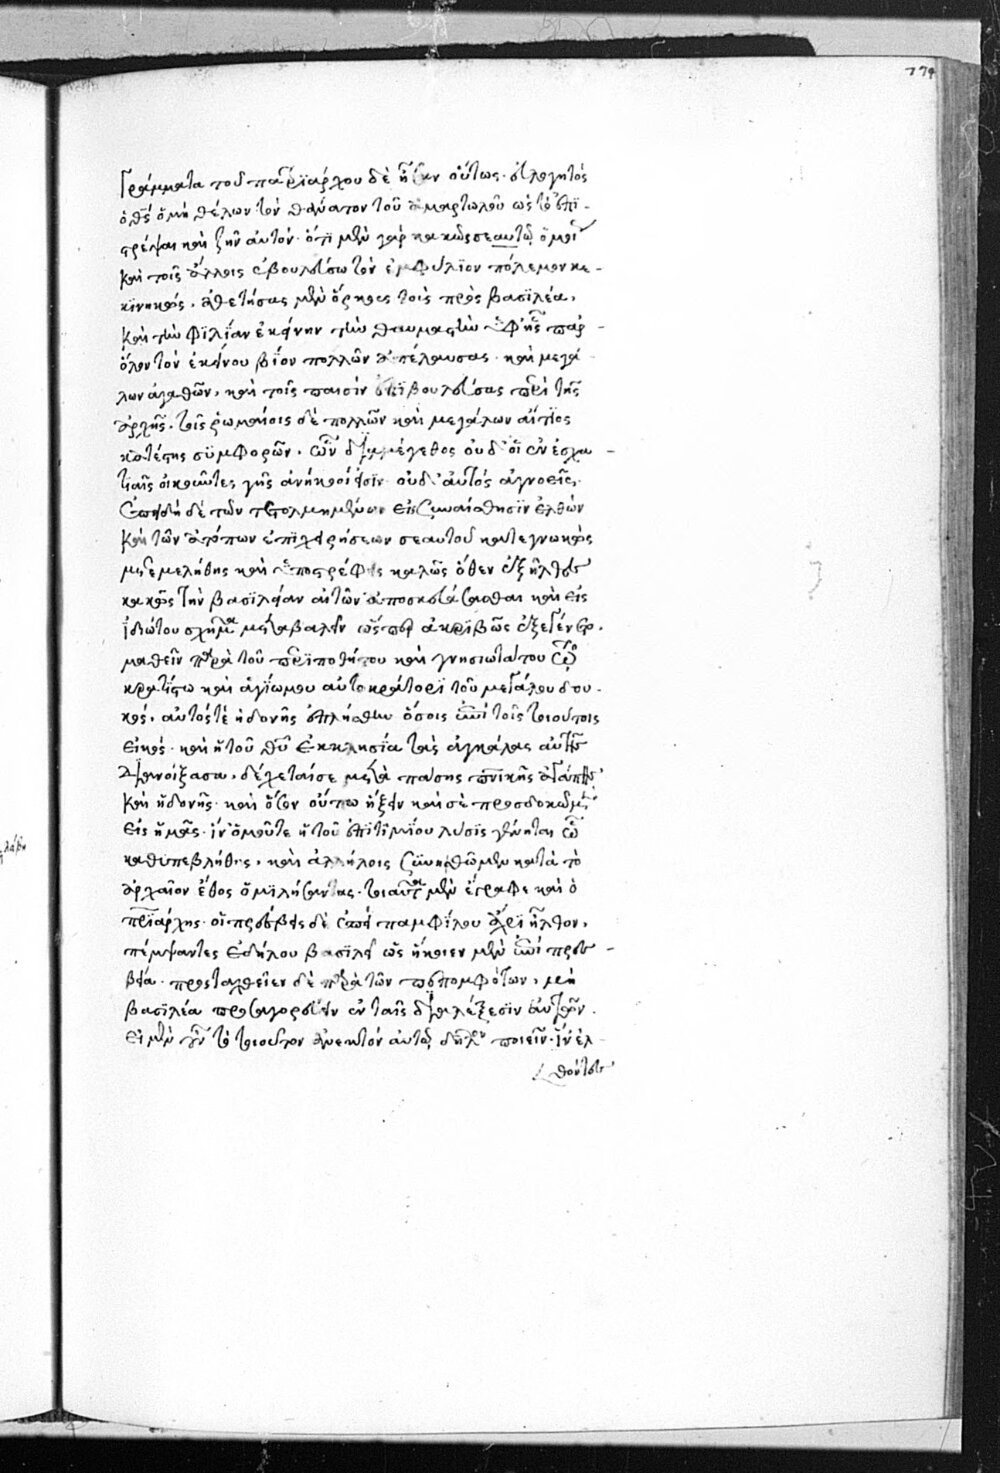 774
Γράμματα τοῦ πατριάρχου δὲ ἦσαν οὕτως· εὐλογητὸς
ὁ θς ὁ μὴ θέλων τὸν θάνατον τοῦ ἁμαρτωλοῦ ὡς τὸ ἐπι-
στρέψαι καὶ ζῆν αὐτόν· ὅτι μὲν γὰρ κακῶς σεαυτῷ ὁμοῦ
καὶ τοῖς ἄλλοις ἐβουλεύσω τὸν ἐμφύλιον πόλεμον κε-
κινηκώς, ἀθετήσας μὲν ὅρκους τοὺς πρὸς βασιλέα,
καὶ τὴν φιλίαν ἐκείνην τὴν θαυμαστὴν ἐφ' ἧς παρ'
ὅλον τὸν ἐκείνου βίον πολλῶν ἀπέλαυσας καὶ μεγά-
λων ἀγαθῶν, καὶ τοῖς παισὶν ἐπιβουλεύσας περὶ τῆς
ἀρχῆς, τοῖς ῥωμαίοις δὲ πολλῶν καὶ μεγάλων αἴτιος
κατέστης συμφορῶν, ὧν διὰ μέγεθος οὐδ' οἱ ἐν ἐσχα-
τιαῖς οἰκοῦντες γῆς ἀνήκοοί εἰσιν οὐδ' αὐτὸς ἀγνοεῖς.
Ἐπειδὴ δὲ τῶν τετολμημένων εἰς συναίσθησιν ἐλθὼν
καὶ τῶν ἀτόπων ἐπιχειρήσεων σεαυτοῦ κατεγνωκὼς
μετεμελήθης καὶ ἐπιστρέφεις καλῶς ὅθεν ἐξῆλθες
κακῶς τὴν βασιλείαν αἰτῶν ἀποσκευάσασθαι καὶ εἰς
ἰδιώτου σχῆμα μεταβαλεῖν ὥσπερ ἀκριβῶς ἐξεγένετο
μαθεῖν παρὰ τοῦ περιποθήτου καὶ γνησιωτάτου τῷ
κρατίστῳ καὶ ἁγίῳ μου αὐτοκράτορι τοῦ μεγάλου δου-
κός, αὐτός τε ἡδονῆς ἐπλήσθην ὅσοις ἐπὶ τοῖς τοιούτοις
εἰκός· καὶ ἡ τοῦ θυ ἐκκλησία τὰς ἀγκάλας αὐτῆς
διανοίξασα, δέχεταί σε μετὰ πάσης πνικῆς ἀγάπης
καὶ ἡδονῆς· καὶ ὅσον οὔπω ἥξειν καὶ σὲ προσδοκῶμεν
εἰς ἡμᾶς· ἵν' ὁμοῦ τε ἡ τοῦ ἐπιτιμίου λύσις γένηται ᾧ
καθυπεβλήθης, καὶ ἀλλήλοις συνησθῶμεν κατὰ τὸ
ἀρχαῖον ἔθος ὁμιλήσαντες. τοιαῦτα μὲν ἔγραφε καὶ ὁ
πατριάρχης· οἱ πρέσβεις δὲ ἐπεὶ παμφίλου ἄχρι ἦλθον,
πέμψαντες ἐδήλουν βασιλεῖ ὡς ἥκοιεν μὲν ἐπὶ πρεσ-
βείᾳ· προσταχθεῖεν δὲ παρὰ τῶν πεπομφότων, μὴ
βασιλέα προσαγορεύειν ἐν ταῖς διαλέξεσιν αὐτόν.
εἰ μὲν οὖν τὸ τοιοῦτον ἀνεκτὸν αὐτῷ δῆλον ποιεῖν· ἵν' ἐλ-
θόντες